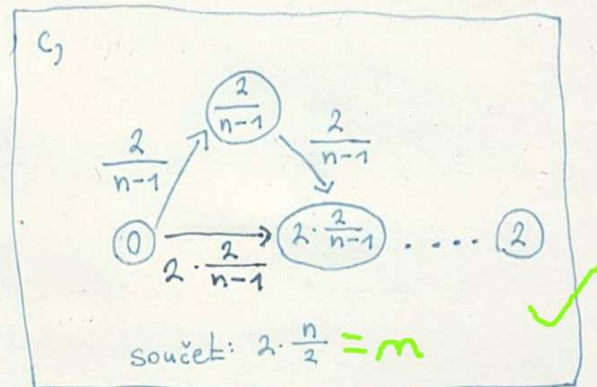 c,
2/(n-1)
2/(n-1)
2/(n-1)
0
2 · 2/(n-1)
2 · 2/(n-1)
....
2
součet: 2 · n/2 = n